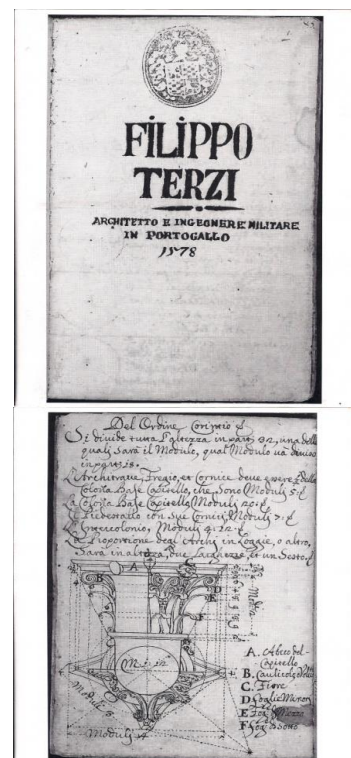 FILIPPO
TERZI
ARCHITETTO E INGEGNERE MILITARE
IN PORTOGALLO
1578
Del Ordine Corintio
Si divide tutta l'altezza in parti 32, una delle
quali sarà il Modulo, qual Modulo va diviso
in parti 18.
L'Architrave, Fregio, et Cornice deve
Colona Base Capitello, che sono Moduli 5
La Colona Base Capitello Moduli 20
Il Piedestallo con sue Cornici, Moduli 7
L'Intercolonio, Moduli 4: 12
La Proportione degli Archi in Loggie, o altro,
Sara in altezza, due Largezze, et un Sesto
A
B
C
D
E
F
Moduli
Moduli
A. Abaco del
Capitello
B. Caulicoli
C. Fiore
D. Foglie Minori
E. Mezza
F. Sotto